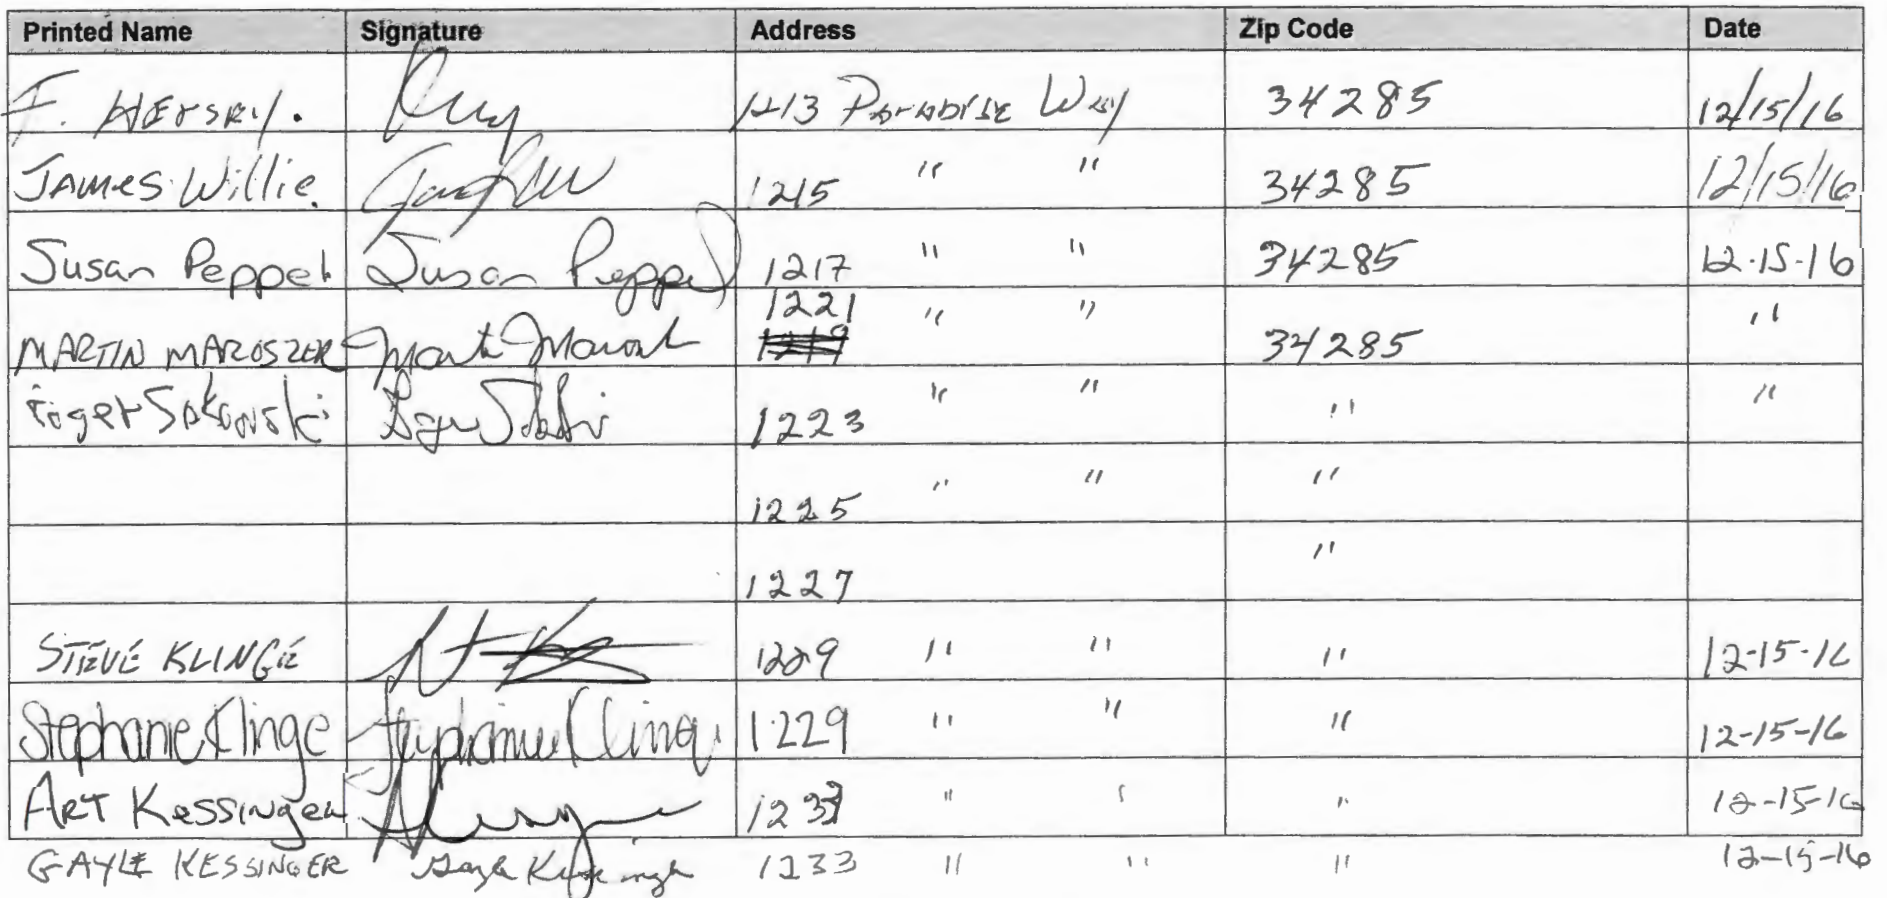 Printed Name Signature Address Zip Code Date
F. Hersey. 1213 Paradise Way 34285 12/15/16
JAMES Willie. 1215 " " 34285 12/15/16
Susan Peppel Susan Peppel 1217 " " 34285 12-15-16
1221 " " "
MARTIN MAROSZEK 1219 34285
Roger Sokowski 1223 " " " "
1225 " " "
1227 "
STEVE KLINGE 1229 " " " 12-15-16
Stephanie Klinge Stephanie Klinge 1229 " " " 12-15-16
ART KessingeR 1233 " " " 12-15-16
GAYLE KESSINGER Gayle Kessinger 1233 " " " 12-15-16